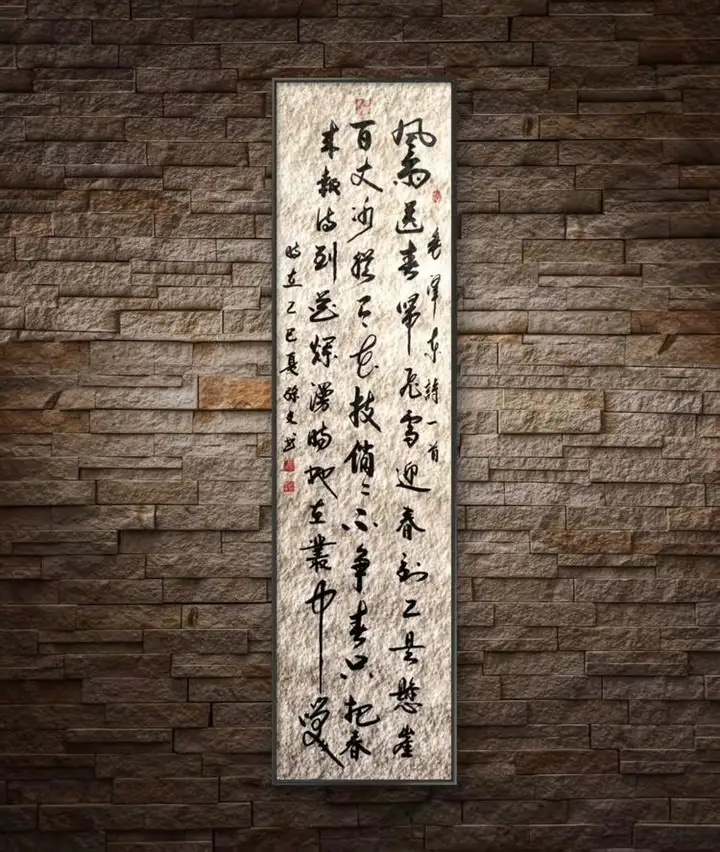 毛澤東詩一首
風雨送春歸飛雪迎春到已是懸崖
百丈冰猶有花枝俏〻不爭春只把春
来報待到花爛漫時她在叢中笑
時在乙巳夏书